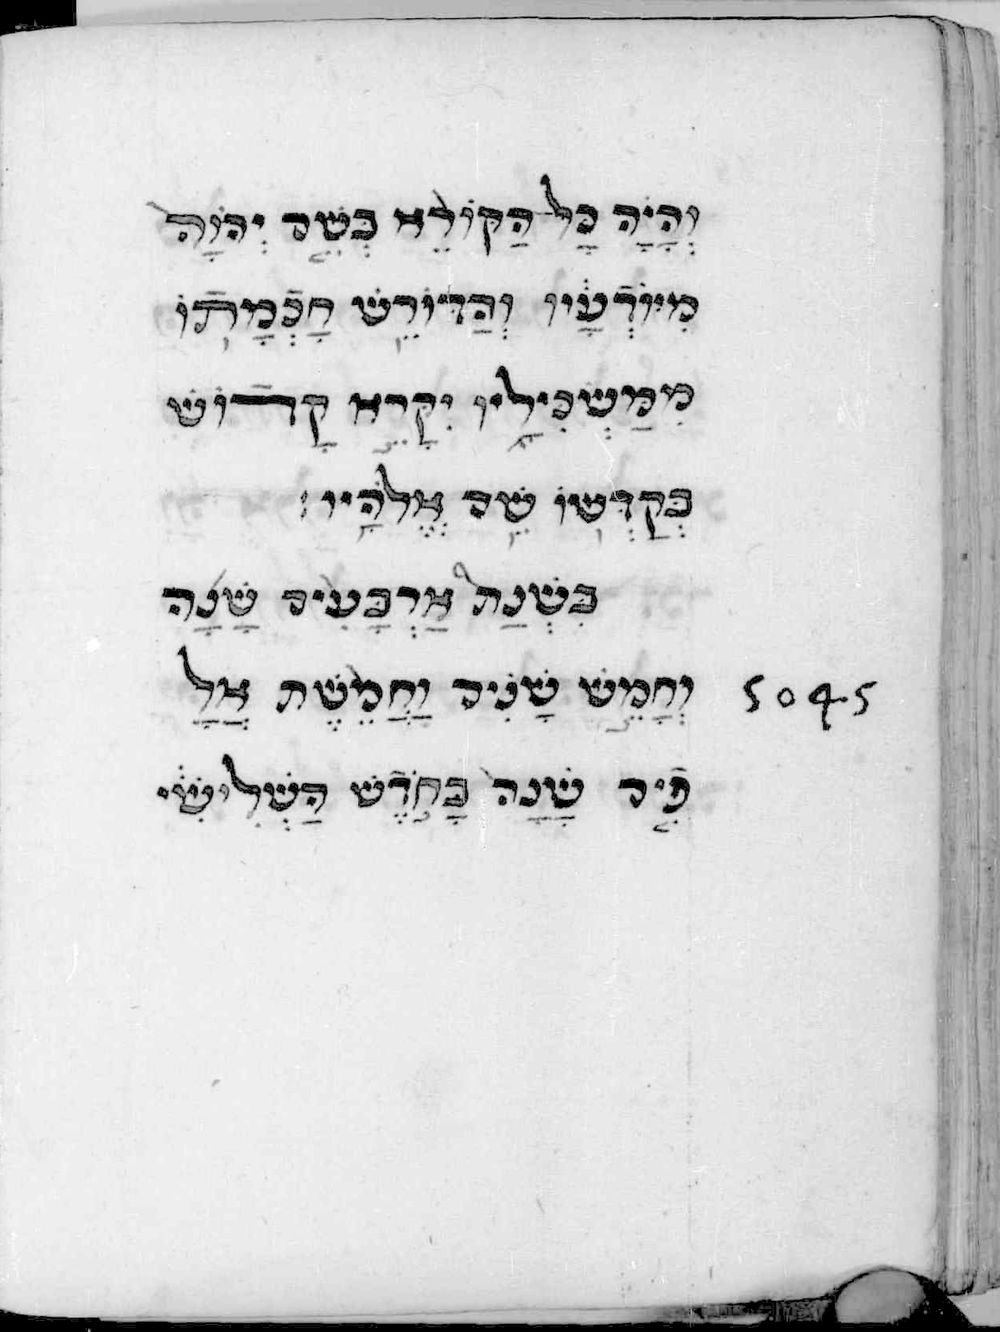 וְהָיָה כָּל הַקּוֹרֵא בְּשֵׁם יְהוָֹה
מִיּוֹדְעָיו וְהַדּוֹרֵשׁ חָכְמָתוֹ
מִמַּשְׂכִּילָיו יִקָּרֵא קָדוֹשׁ
בְּקַדְּשׁוֹ שֵׁם אֱלֹהָיו׃
בִּשְׁנַת אַרְבָּעִים שָׁנָה
וְחָמֵשׁ שָׁנִים וַחֲמֵשֶׁת אֲלָ 5045
פִים שָׁנָה בָּחֹדֶשׁ הַשְּׁלִישִׁי